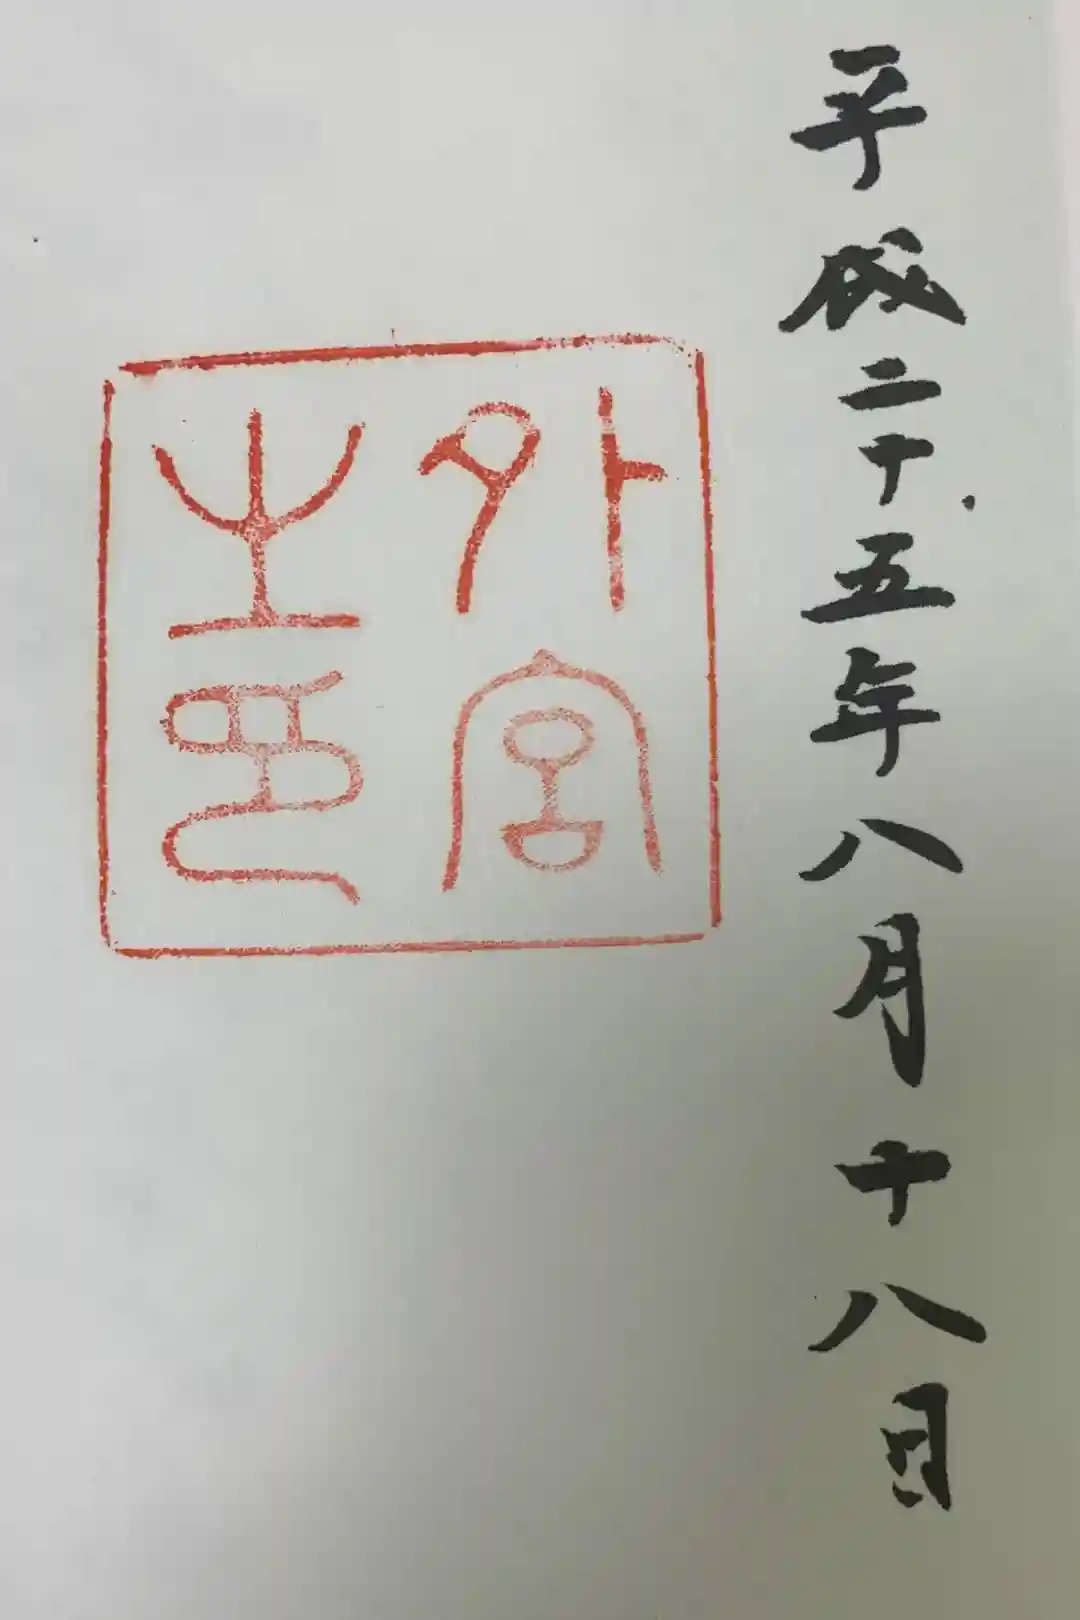 平成二十五年八月十八日
外宮
之印